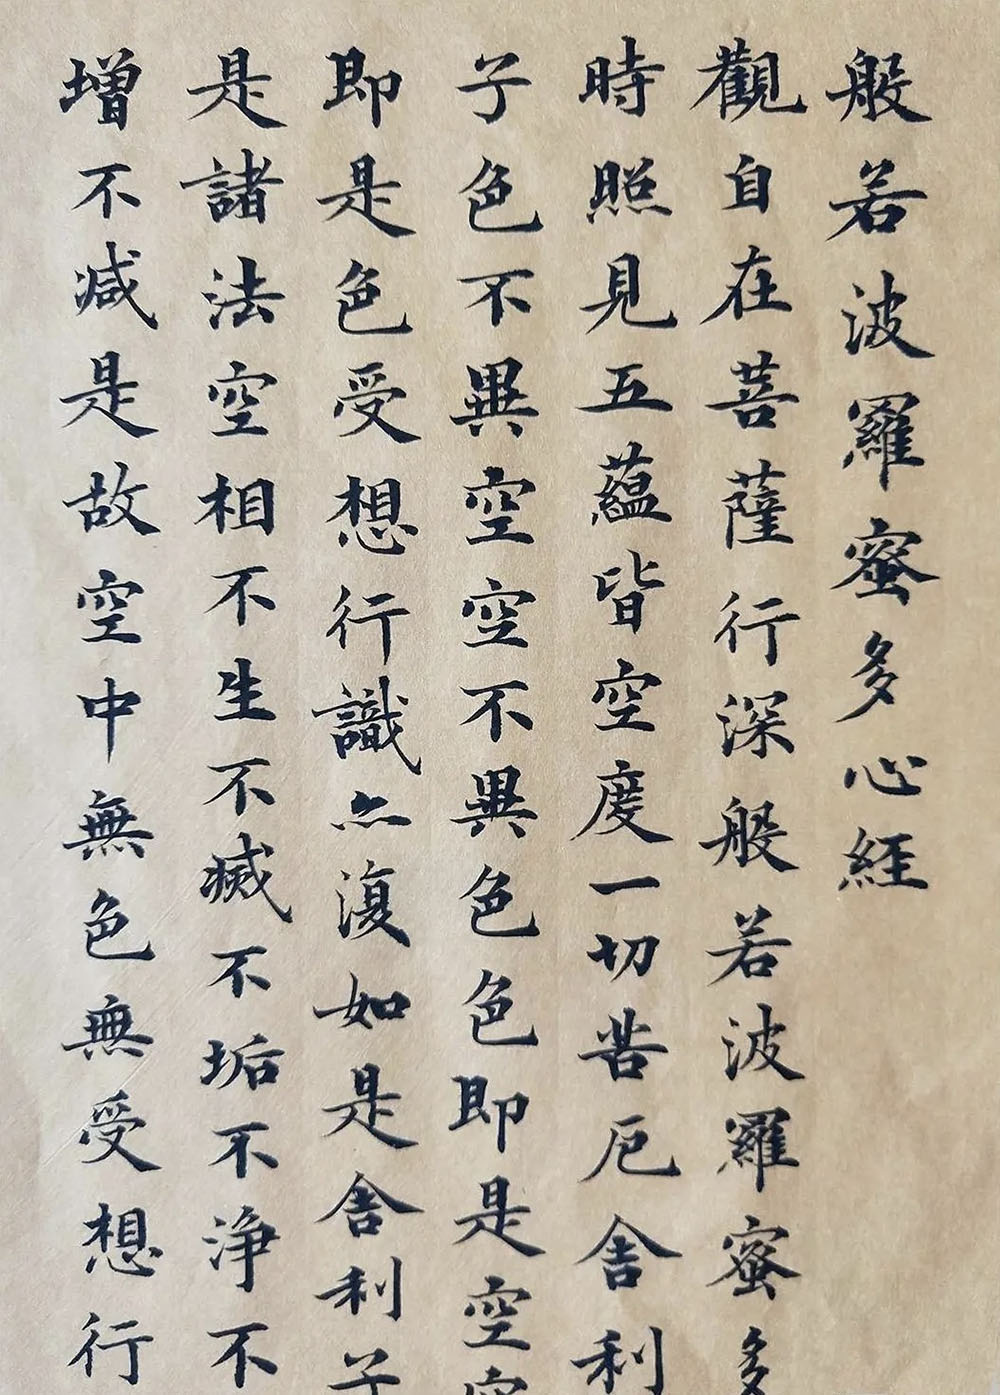 般若波羅蜜多心經
觀自在菩薩行深般若波羅蜜多
時照見五蘊皆空度一切苦厄舍利
子色不異空空不異色色即是空空
即是色受想行識亦復如是舍利子
是諸法空相不生不滅不垢不淨不
增不減是故空中無色無受想行